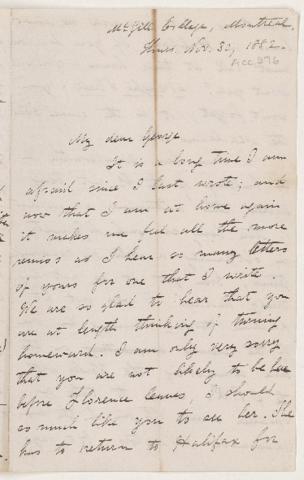 McGill College, Montreal.
Thurs. Nov. 30, 1882.
ACC 276
My dear George
It is a long time I am
afraid since I last wrote; and
now that I am at home again
it makes me feel all the more
remiss as I hear so many letters
of yours for one that I write.
We are so glad to hear that you
are at length thinking of turning
homeward. I am only very sorry
that you are not likely to be here
before Florence leaves, I should
so much like you to see her. She
has to return to Halifax for